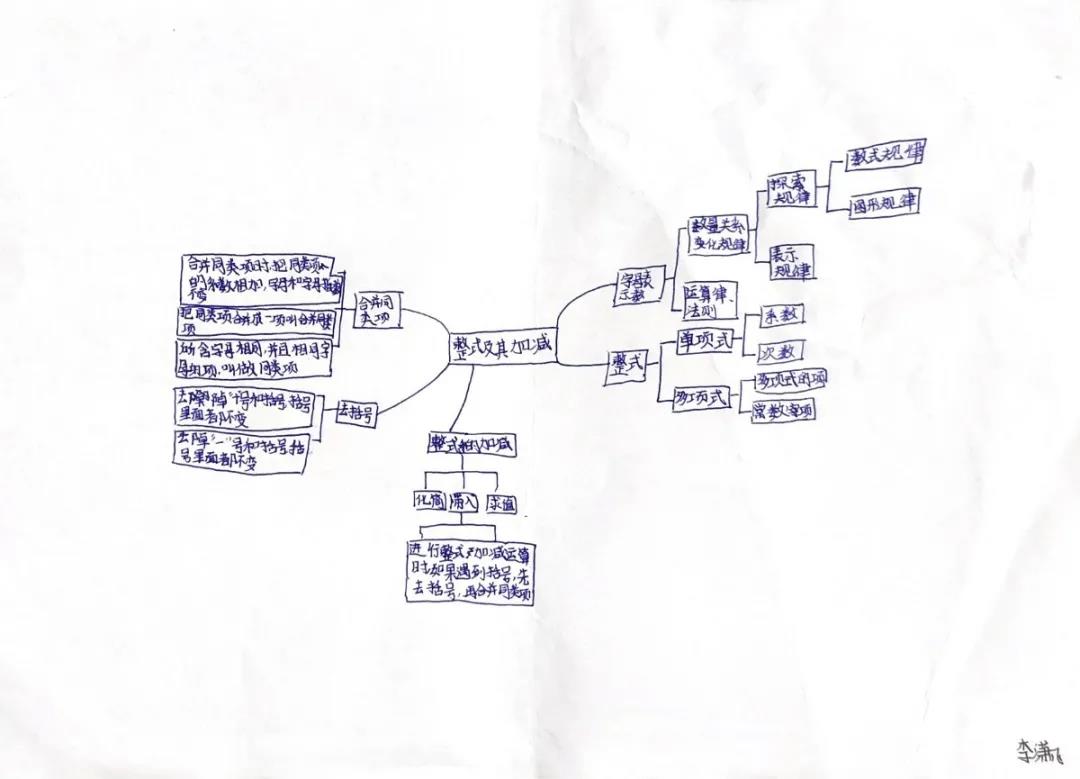 数式规律
探索
规律
图形规律
数量关系
变化规律
表示
规律
字母表
示数
运算律、
法则
合并同类项时,把同类项
的系数相加,字母和字母指数
不变
合并同
类项
把同类项合并成一项叫合并同类
项
所含字母相同,并且相同字
母的项,叫做同类项
整式及其加减
整式
单项式
系数
次数
多项式
多项式的项
常数项
去括号
号和括号,括号
里面都不变
去掉“-”号和括号,括
号里面都不变
整式的加减
化简
求值
进行整式加减运算
时如果遇到括号,先
去括号,再合并同类项
李潇